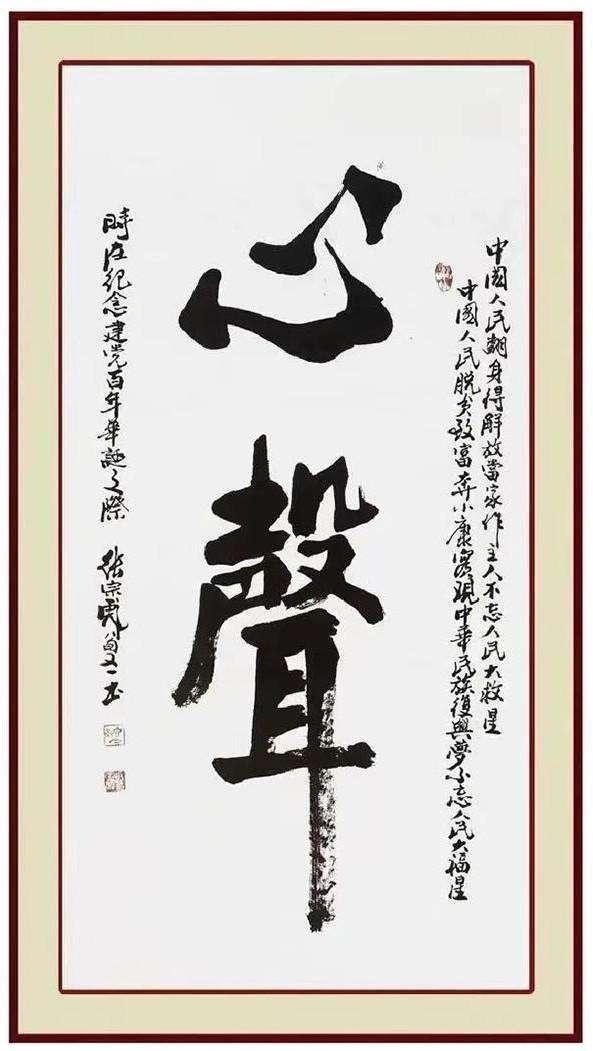 中國人民翻身得解放當家作主人不忘人民大救星
中國人民脱贫致富奔小康實現中華民族復興夢不忘人民大福星
心聲
時在紀念建党百年華誕之際 张宗書